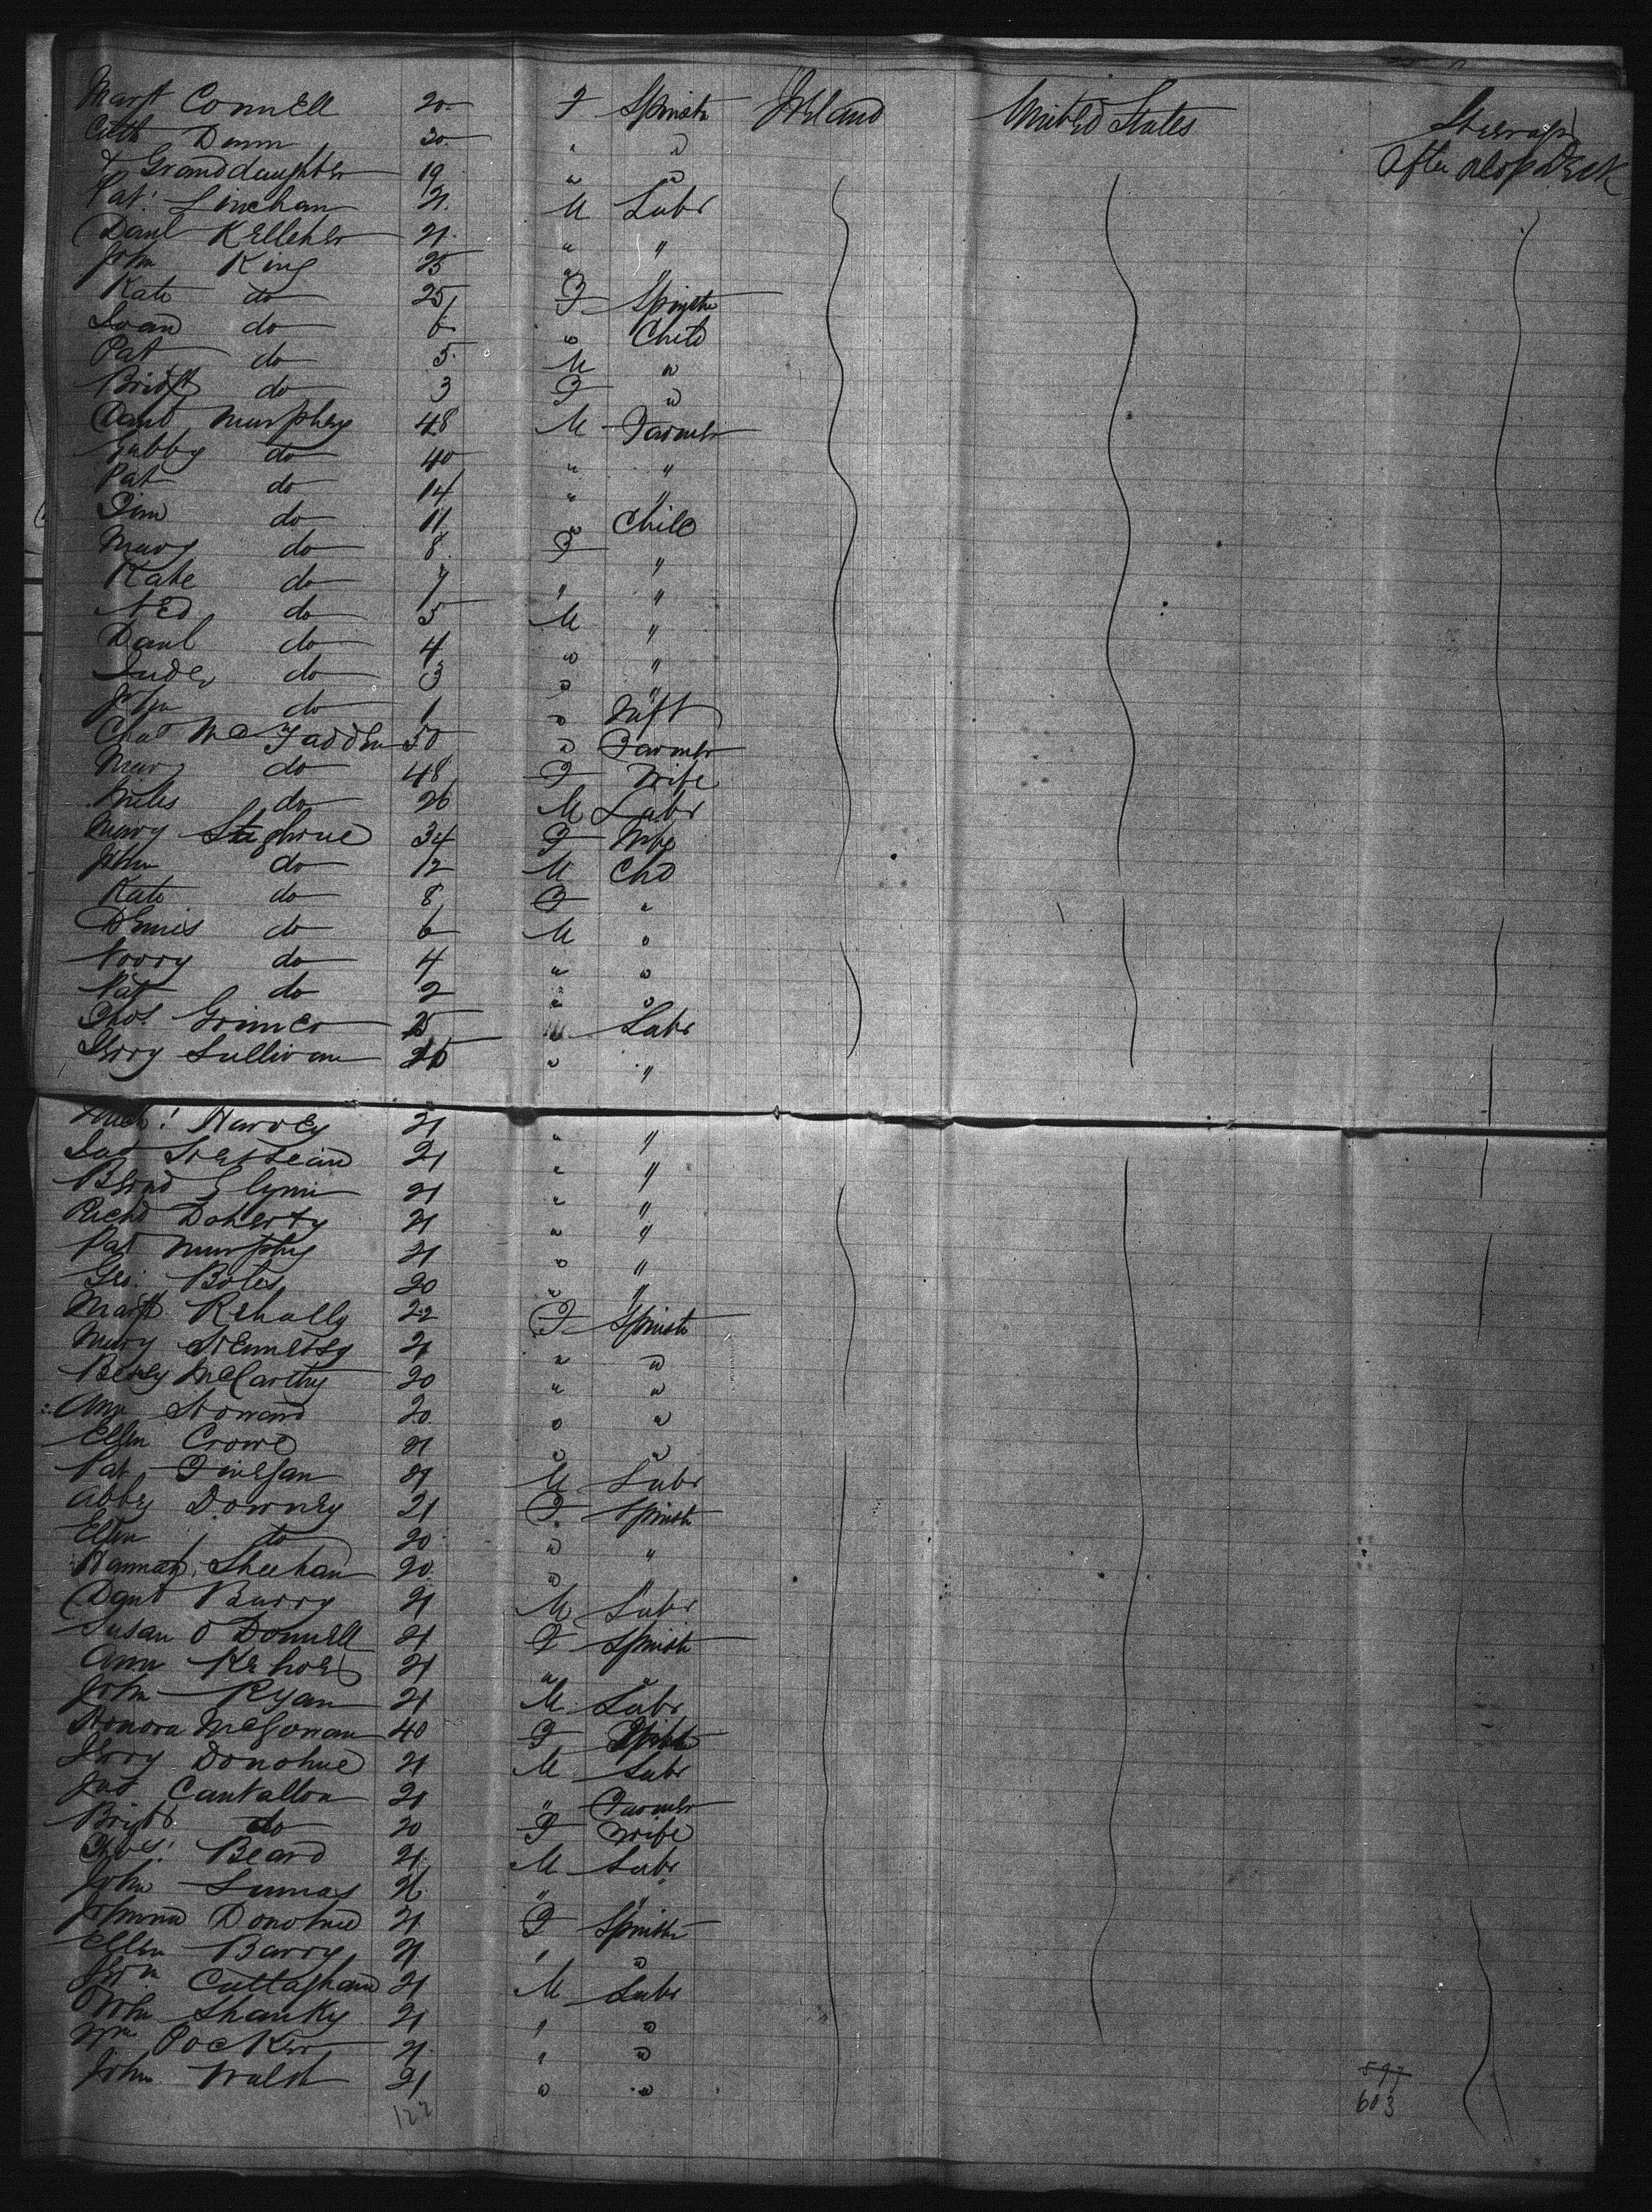 Margt Connell 20 F Spinstr Ireland United States Steerage
Cath Dunn 20 " " After Deck
& Granddaughter 19 " "
Pat. Linehan 21 M Labr
Danl Kelleher 21 " "
John King 25 " "
Kate do 25 F Spinstr
Joan do 6 " Child
Pat do 5 M "
Bridgt do 3 F "
Danl Murphey 48 M Farmer
Gubby do 40 " "
Pat do 14 " "
Tim do 11 " Child
Mary do 8 F "
Kate do 7 " "
Ned do 5 M "
Danl do 4 " "
Judey do 3 " "
John do 1 " Inft
Chas McFadden 50 " Farmer
Mary do 48 F Wife
Miles do 26 M Labr
Mary 34 F Wife
John do 12 M Chd
Kate do 8 F "
Dennis do 6 M "
Norry do 4 " "
Pat do 2 " "
Thos. Grimes 25 " Labr
Jerry Sullivan " "
Mich! Harvey 21 " "
Jas 21 " "
Bernd Glynn 21 " "
Richd Doherty 21 " "
Pat Murphy 21 " "
Geo. Boles 20 " "
Margt 22 F Spinstr
Mary Hennessy 21 " "
Bessy McCarthy 20 " "
Ann Howard 20 " "
Ellen Crowe 21 " "
Pat Finegan 29 M Labr
Abby Downey 21 F Spinstr
Ellen do 20 " "
Hannah Sheehan 20 " "
Danl Barry 21 M Labr
Susan O Donnell 21 F Spinstr
Ann Kehoe 21 " "
John Ryan 21 M Labr
Honora McGowan 40 F
Jerry Donohue 21 M Labr
Jas Cantallon 21 " Farmer
Bridgt do 20 F Wife
Thos! Beard 21 M Labr
John Lumas 26 " "
Johanna Donohue 21 F Spinstr
Ellen Barry 21 " "
Jerm Callaghan 21 M Labr
John Shanky 21 " "
Wm Pocker 21 " "
John Walsh 21 " "
597
122 603